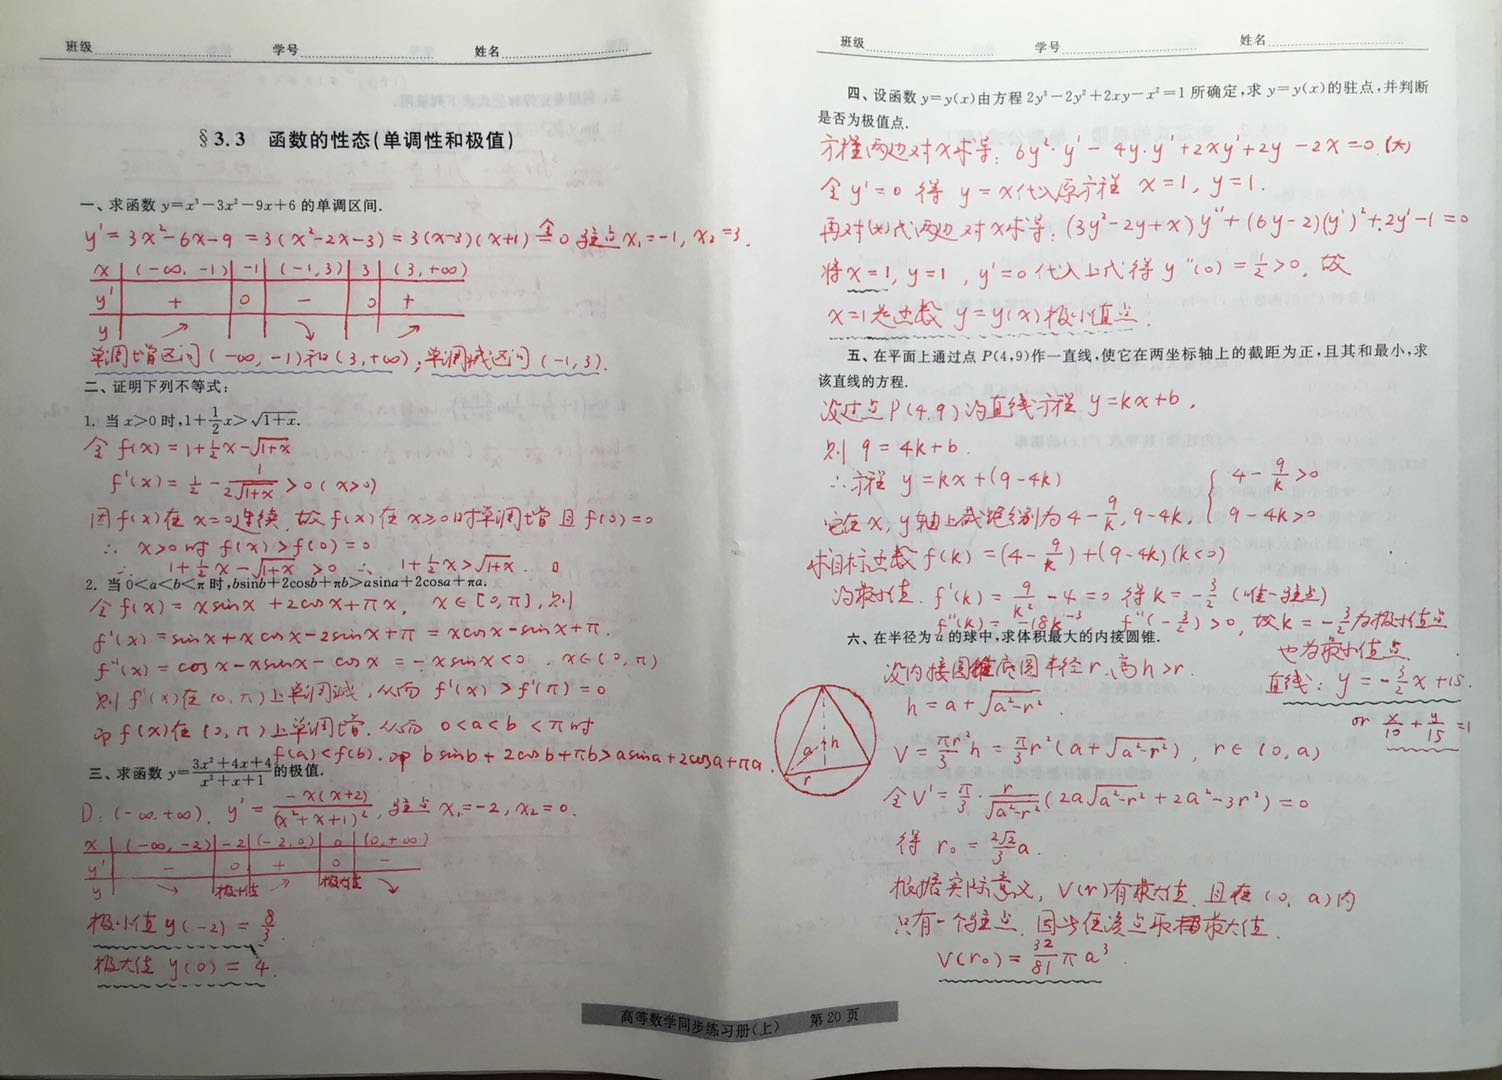 班级 学号 姓名
§3.3 函数的性态(单调性和极值)
一、求函数 y=x³-3x²-9x+6 的单调区间.
y' = 3x²-6x-9 = 3(x²-2x-3) = 3(x-3)(x+1) 令= 0 驻点 x₁=-1, x₂=3.
x (-∞, -1) -1 (-1, 3) 3 (3, +∞)
y' + 0 - 0 +
y ↗ ↘ ↗
单调增区间 (-∞, -1) 和 (3, +∞); 单调减区间 (-1, 3).
二、证明下列不等式:
1. 当 x>0 时, 1+½x>√(1+x).
令 f(x) = 1+½x-√(1+x)
f'(x) = ½ - 1/(2√(1+x)) > 0 (x>0)
因 f(x) 在 x=0 连续, 故 f(x) 在 x≥0 时单调增 且 f(0)=0
∴ x>0 时 f(x) > f(0) = 0
∴ 1+½x-√(1+x) > 0 ∴ 1+½x>√(1+x). □
2. 当 0<a<b<π 时, bsinb+2cosb+πb>asina+2cosa+πa.
令 f(x) = xsinx + 2cosx + πx, x∈[0,π], 则
f'(x) = sinx + xcosx - 2sinx + π = xcosx - sinx + π.
f''(x) = cosx - xsinx - cosx = -xsinx < 0, x∈(0, π)
则 f'(x) 在 (0, π) 上单调减, 从而 f'(x) > f'(π) = 0
即 f(x) 在 (0, π) 上单调增. 从而 0<a<b<π 时
f(a)<f(b). 即 bsinb+2cosb+πb>asina+2cosa+πa.
三、求函数 y=(3x²+4x+4)/(x²+x+1) 的极值.
D: (-∞, +∞). y' = -x(x+2)/(x²+x+1)², 驻点 x₁=-2, x₂=0.
x (-∞, -2) -2 (-2, 0) 0 (0, +∞)
y' - 0 + 0 -
y ↘ 极小值 ↗ 极大值 ↘
极小值 y(-2) = 8/3.
极大值 y(0) = 4.
班级 学号 姓名
四、设函数 y=y(x)由方程 2y³-2y²+2xy-x²=1 所确定,求 y=y(x)的驻点,并判断
是否为极值点.
方程两边对 x 求导: 6y²·y' - 4y·y' + 2xy' + 2y - 2x = 0. (*)
令 y'=0 得 y=x 代入原方程 x=1, y=1.
再对(*)式两边对 x 求导: (3y²-2y+x)y'' + (6y-2)(y')² + 2y' - 1 = 0
将 x=1, y=1, y'=0 代入上式得 y''(0) = ½ > 0, 故
x=1 是函数 y=y(x) 极小值点.
五、在平面上通过点 P(4,9)作一直线,使它在两坐标轴上的截距为正,且其和最小,求
该直线的方程.
设过点 P(4,9) 的直线方程 y=kx+b,
则 9=4k+b.
∴方程 y=kx+(9-4k)
它在 x, y 轴上截距分别为 4-9/k, 9-4k, { 4-9/k>0
9-4k>0
求目标函数 f(k) = (4-9/k)+(9-4k) (k<0)
的最小值. f'(k) = 9/k² - 4 = 0 得 k=-3/2 (唯一驻点)
f''(k) = -18k⁻³ f''(-3/2)>0, 故 k=-3/2 为极小值点
也为最小值点.
直线: y=-3/2 x+15.
or x/10 + y/15 = 1
六、在半径为 a 的球中,求体积最大的内接圆锥.
设内接圆锥底圆半径 r, 高 h>r.
h = a+√(a²-r²).
V = πr²/3 h = π/3 r²(a+√(a²-r²)), r∈(0, a)
a h
r
令 V' = π/3 · r/√(a²-r²) (2a√(a²-r²) + 2a² - 3r²) = 0
得 r₀ = 2√2/3 a.
根据实际意义, V(r) 有最大值, 且在 (0, a) 内
只有一个驻点, 因此在该点取最大值.
V(r₀) = 32/81 πa³.
高等数学同步练习册(上) 第20页